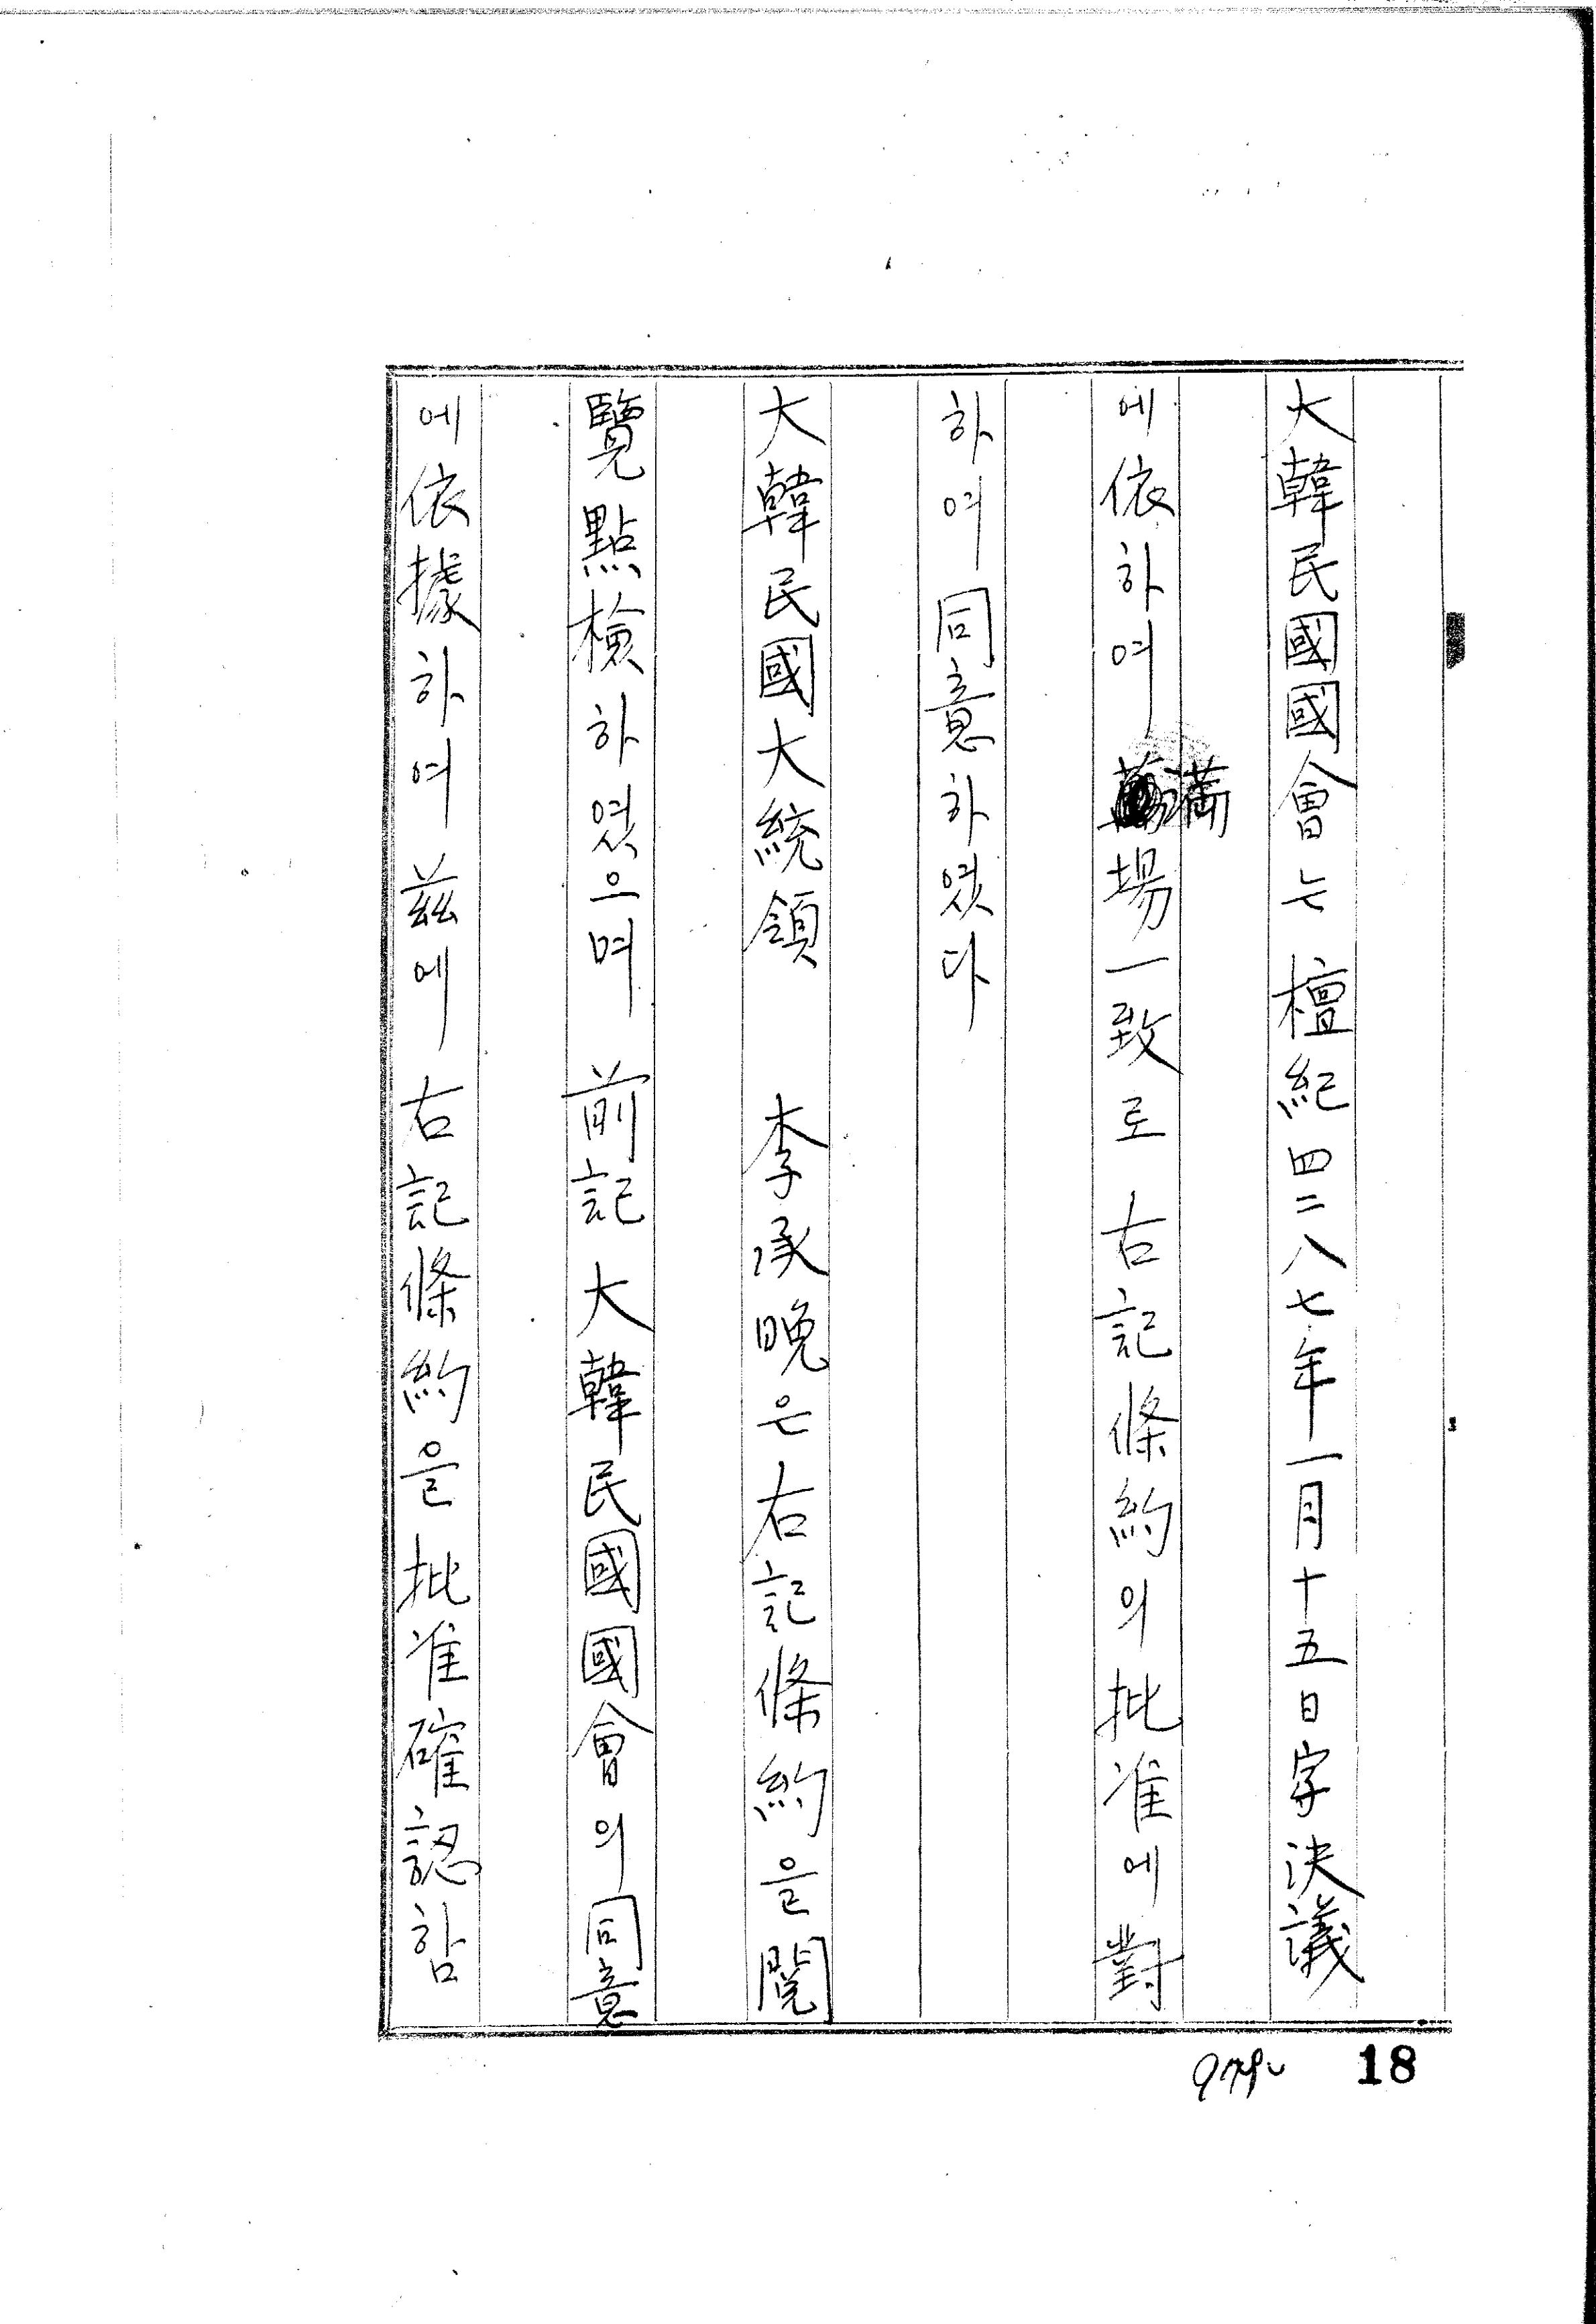 大韓民國國會는 檀紀四二八七年一月十五日字決議
에依하여 滿場一致로 右記條約의批准에對
하여同意하였다
大韓民國大統領 李承晩은右記條約을閱
覽點檢하였으며 前記大韓民國國會의同意
에依據하여玆에 右記條約을批准確認함
18